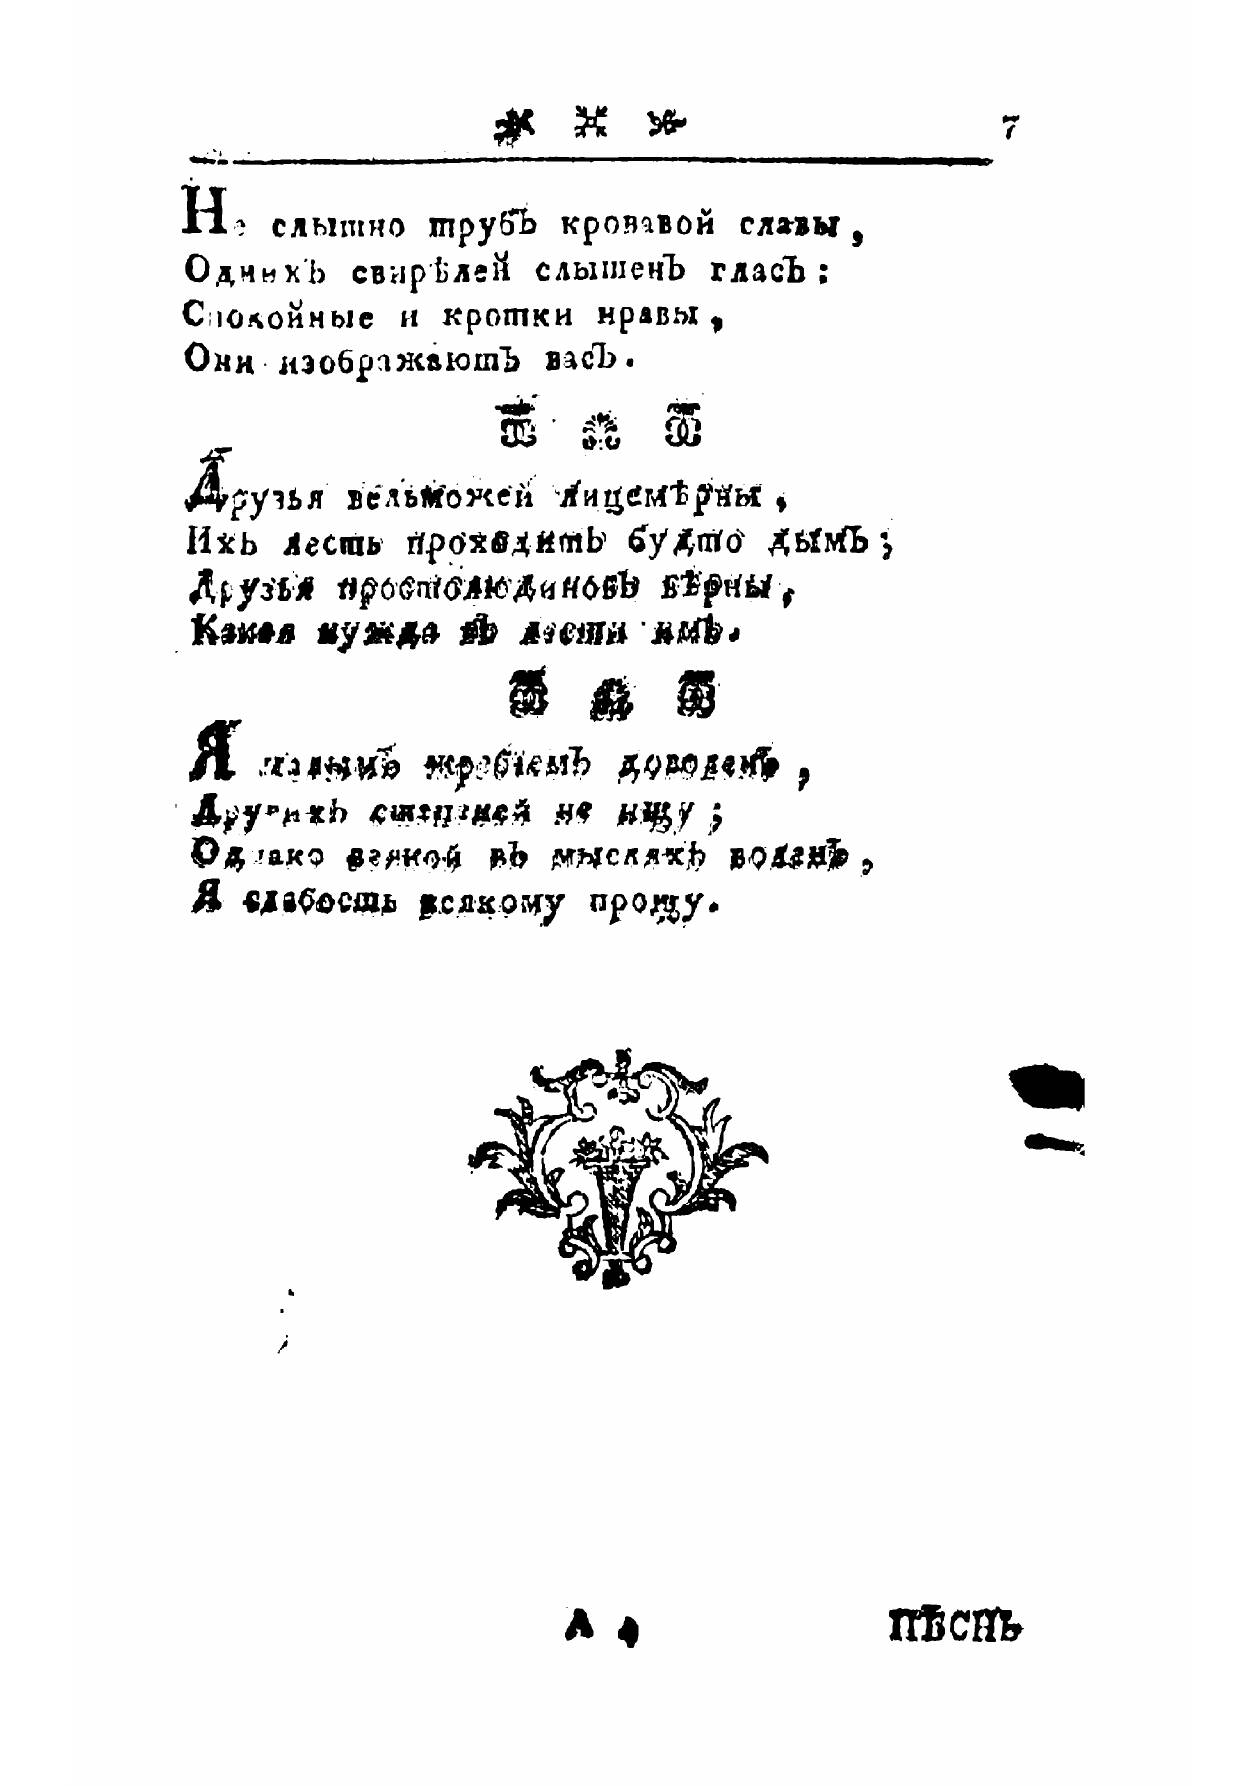 7
Не слышно трубъ кровавой славы,
Однихъ свирѣлей слышенъ гласъ:
Спокойные и кротки нравы,
Они изображаютъ васъ.
Друзья вельможей лицемѣрны,
Ихъ лесть проходитъ будто дымъ;
Друзья простолюдиновъ вѣрны,
Какая нужда въ лести имъ.
Я малымъ жребіемъ доволенъ,
Другихъ степеней не ищу;
Однако всякой въ мысляхъ воленъ,
Я слабость всякому прощу.
А 4
ПѢСНЬ